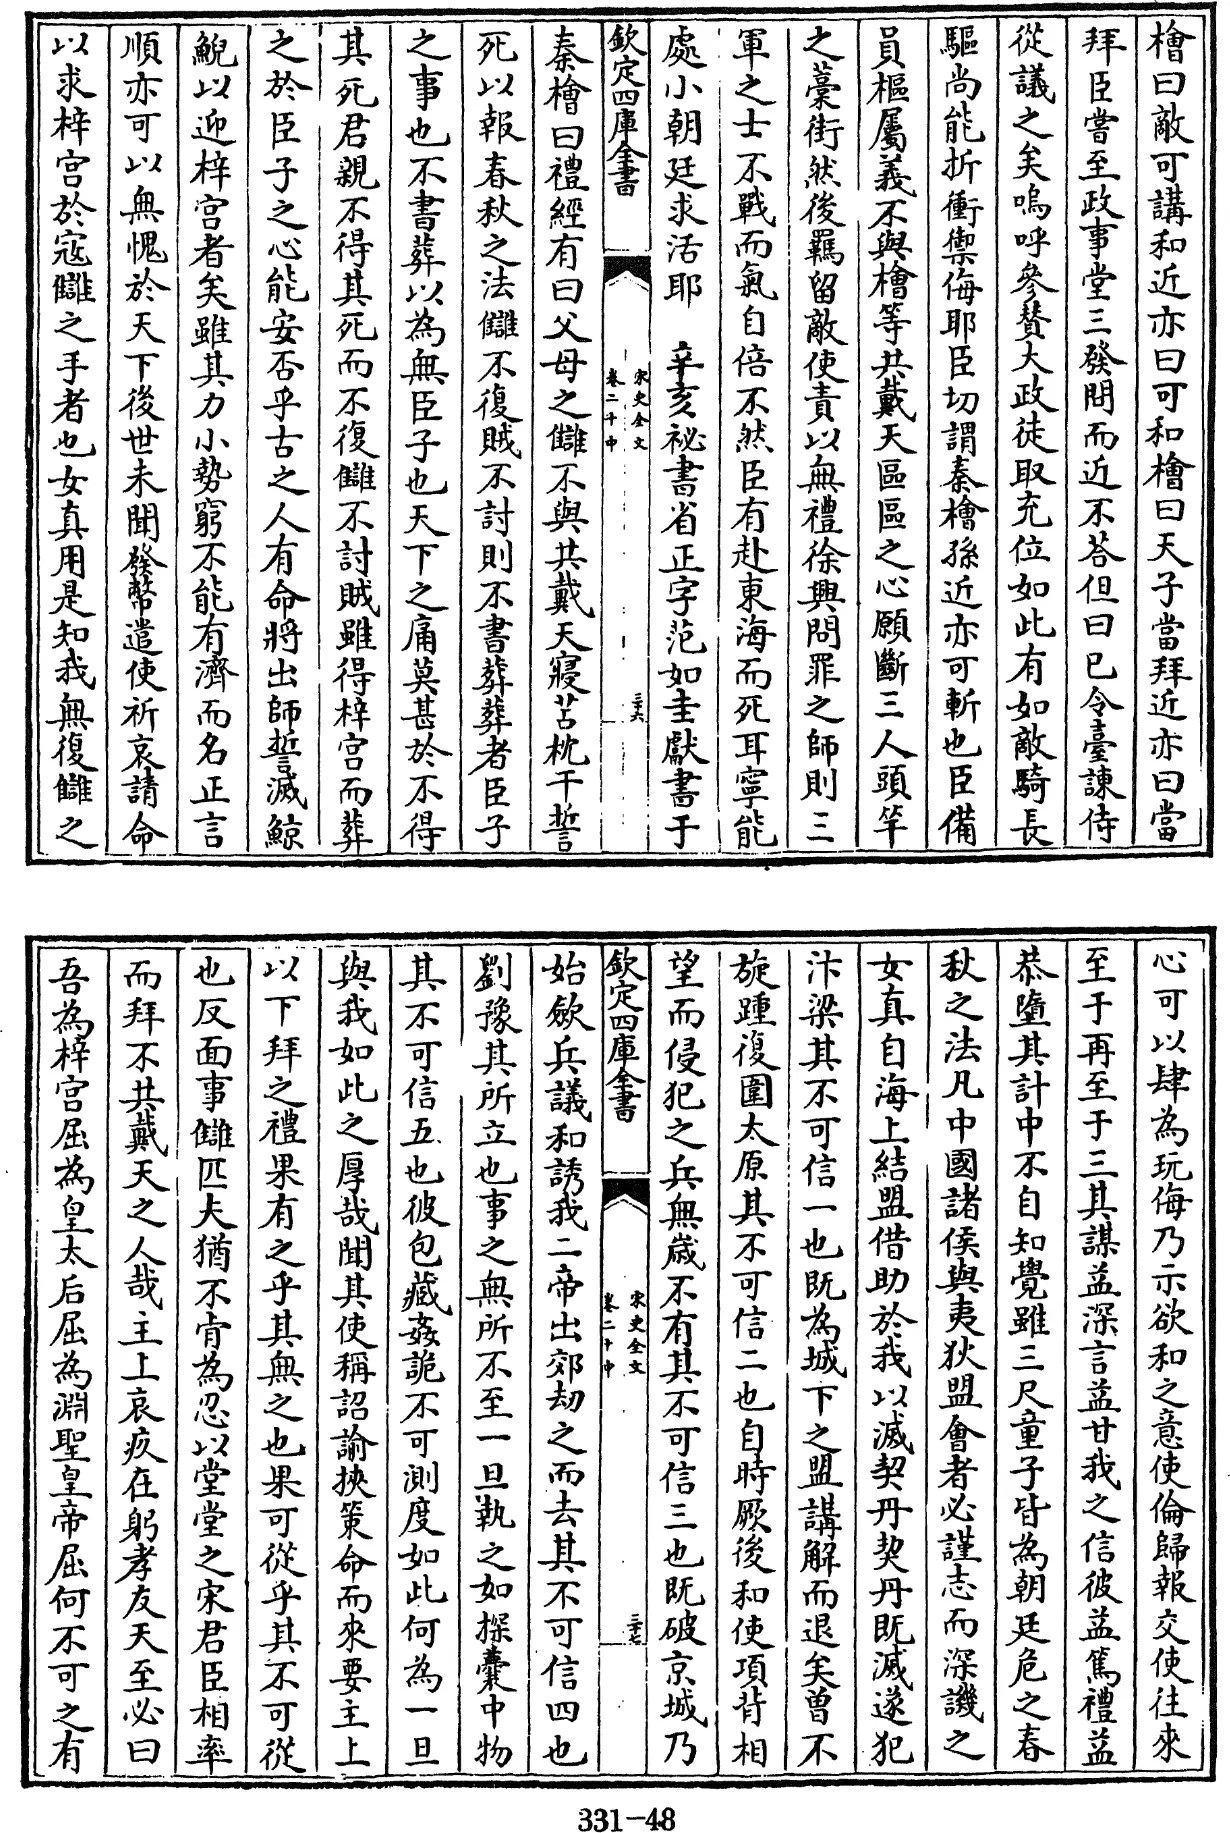 檜曰敵可講和近亦曰可和檜曰天子當拜近亦曰當
拜臣嘗至政事堂三發問而近不荅但曰已令臺諫侍
從議之矣嗚呼參贊大政徒取充位如此有如敵騎長
驅尚能折衝禦侮耶臣切謂秦檜孫近亦可斬也臣備
員樞屬義不與檜等共戴天區區之心願斷三人頭竿
之藁街然後羈留敵使責以無禮徐興問罪之師則三
軍之士不戰而氣自倍不然臣有赴東海而死耳寧能
處小朝廷求活耶　辛亥祕書省正字范如圭獻書于
欽定四庫全書
宋史全文
卷二十中
三十六
秦檜曰禮經有曰父母之讎不與共戴天寢苫枕干誓
死以報春秋之法讎不復賊不討則不書葬葬者臣子
之事也不書葬以為無臣子也天下之痛莫甚於不得
其死君親不得其死而不復讎不討賊雖得梓宮而葬
之於臣子之心能安否乎古之人有命將出師誓滅鯨
鯢以迎梓宮者矣雖其力小勢窮不能有濟而名正言
順亦可以無愧於天下後世未聞發幣遣使祈哀請命
以求梓宮於寇讎之手者也女真用是知我無復讎之
心可以肆為玩侮乃示欲和之意使倫歸報交使往來
至于再至于三其謀益深言益甘我之信彼益篤禮益
恭墮其計中不自知覺雖三尺童子皆為朝廷危之春
秋之法凡中國諸侯與夷狄盟會者必謹志而深譏之
女真自海上結盟借助於我以滅契丹契丹既滅遂犯
汴梁其不可信一也既為城下之盟講解而退矣曾不
旋踵復圍太原其不可信二也自時厥後和使項背相
望而侵犯之兵無歲不有其不可信三也既破京城乃
欽定四庫全書
宋史全文
卷二十中
三十七
始歛兵議和誘我二帝出郊劫之而去其不可信四也
劉豫其所立也事之無所不至一旦執之如探囊中物
其不可信五也彼包藏姦詭不可測度如此何為一旦
與我如此之厚哉聞其使稱詔諭挾策命而來要主上
以下拜之禮果有之乎其無之也果可從乎其不可從
也反面事讎匹夫猶不肯為忍以堂堂之宋君臣相率
而拜不共戴天之人哉主上哀疚在躬孝友天至必曰
吾為梓宮屈為皇太后屈為淵聖皇帝屈何不可之有
331-48